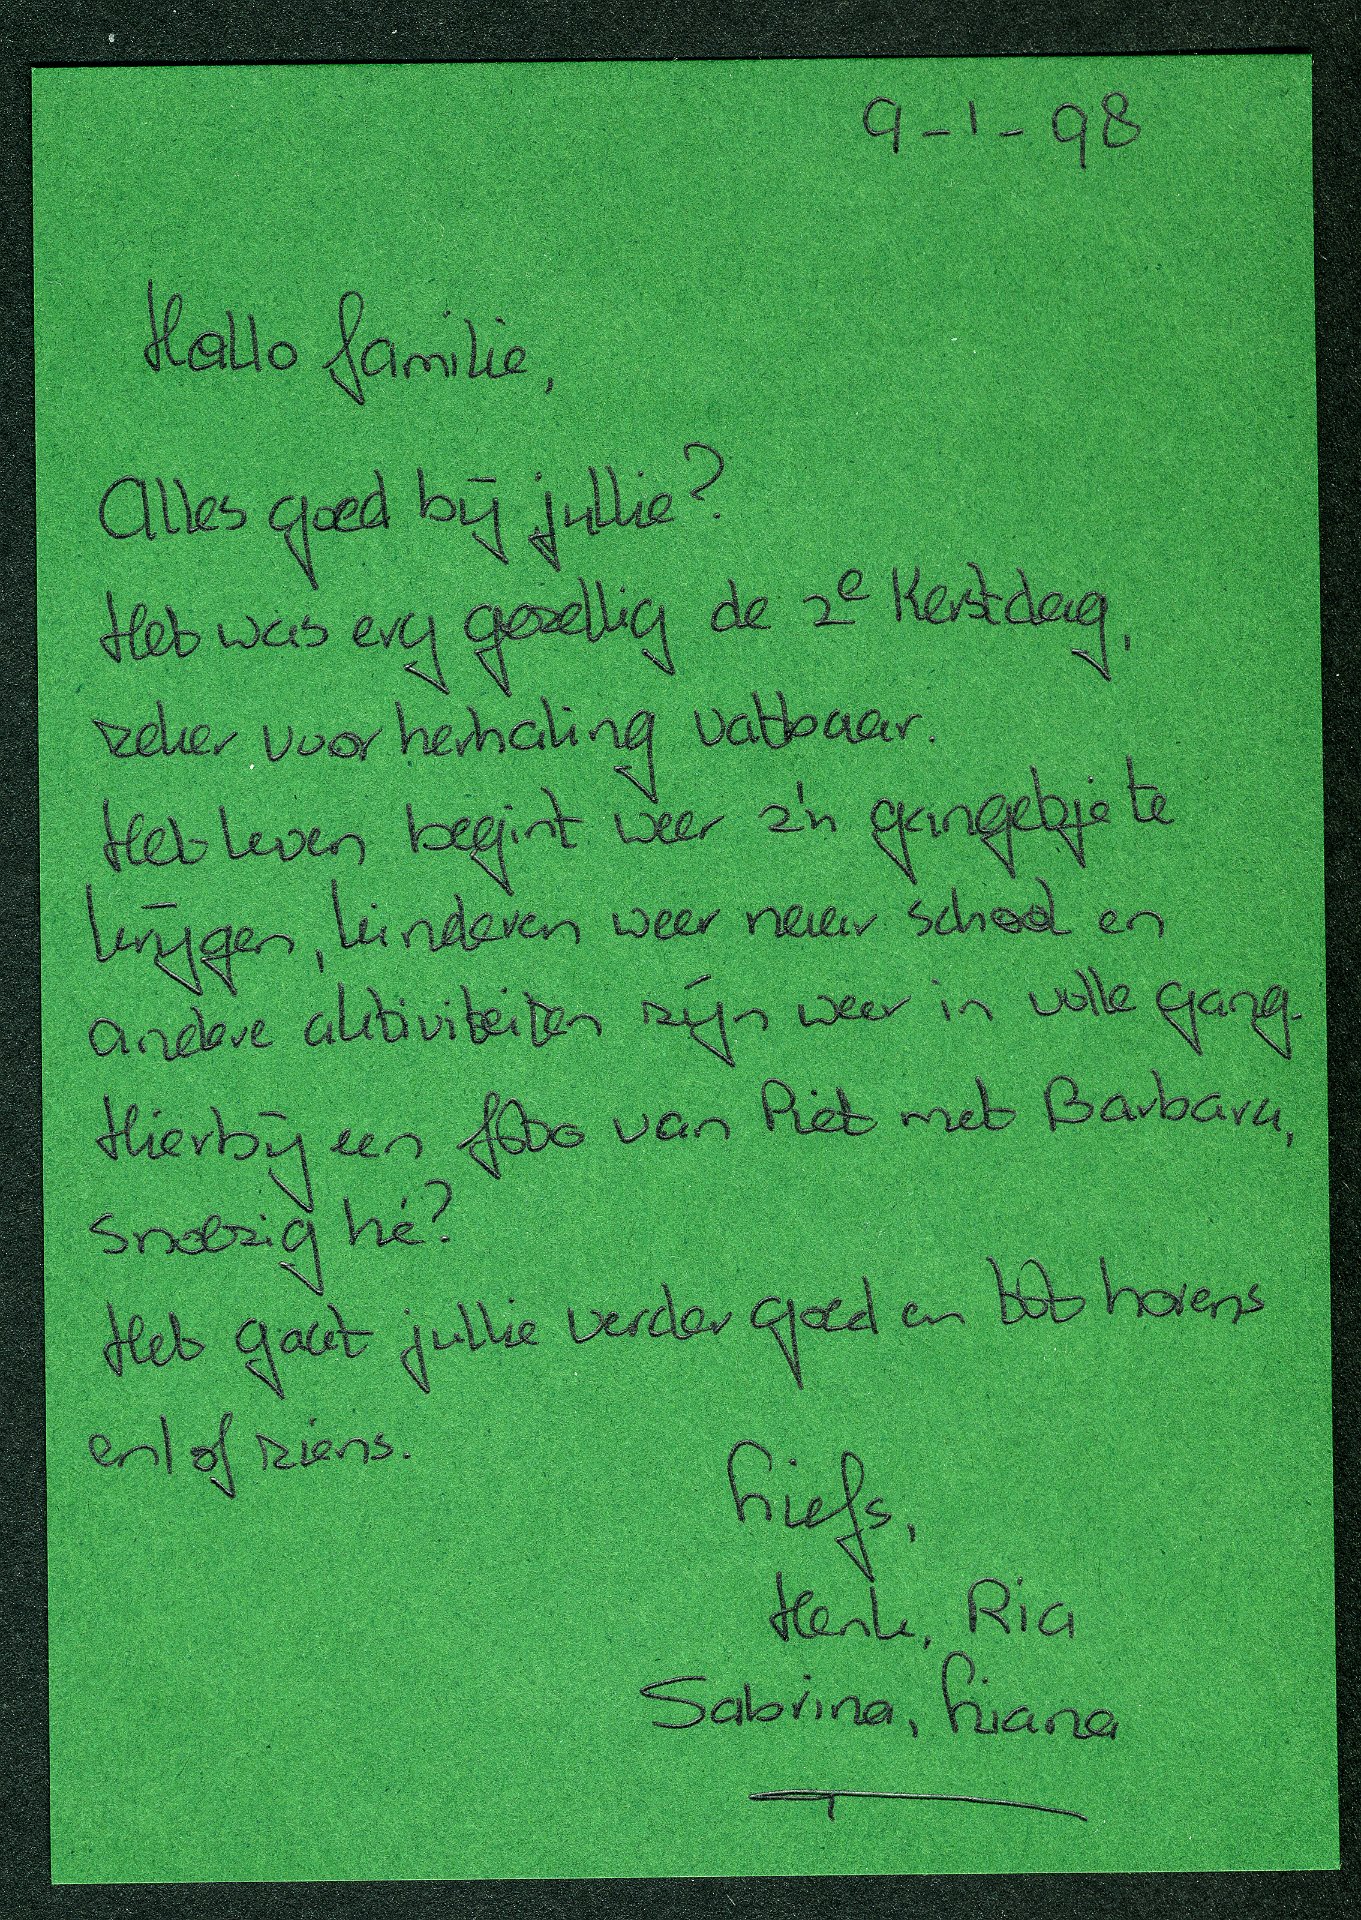 9-1-98
Hallo familie,
Alles goed bij jullie?
Het was erg gezellig de 2e Kerstdag,
zeker voor herhaling vatbaar.
Het leven begint weer z'n gangetje te
krijgen, kinderen weer naar school en
andere aktiviteiten zijn weer in volle gang.
Hierbij een foto van Piet met Barbara,
snoezig hé?
Het gaat jullie verder goed en tot horens
en/of ziens.
Liefs,
Henk, Ria
Sabrina, Liana